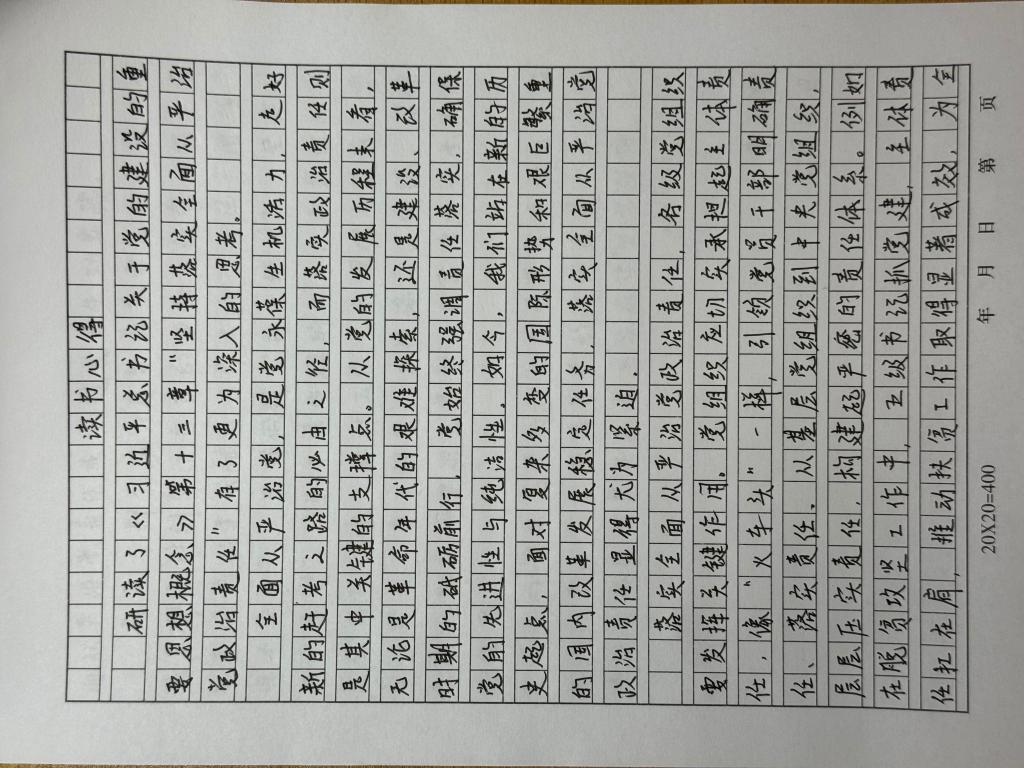 读书心得
研读了《习近平总书记关于党的建设的重
要思想概念》第十三章“坚持落实全面从严治
党政治责任”有了更为深入的思考。
全面从严治党，是党永葆生机活力，走好
新的赶考之路的必由之径，而落实政治责任则
是其中关键的支撑点。从党的发展历程来看，
无论是革命年代的艰难探索，还是建设、改革
时期的砥砺前行，党始终强调责任落实，确保
党的先进性与纯洁性。如今，我们站在新的历
史起点，面对复杂多变的国际形势和艰巨繁重
的国内改革发展稳定任务，落实全面从严治党
政治责任显得尤为紧迫。
落实全面从严治党政治责任，各级党组织
要发挥关键作用。党组织应切实承担起主体责
任，像“火车头”一样，引领党员干部明确责
任、落实责任、从基层党组织到中央党组织，
层层压实责任，构建起严密的责任体系。例如
在脱贫攻坚工作中，五级书记抓党建，主体责
任扛在肩，推动扶贫工作取得显著成效，为全
20X20=400 年 月 日 第 页